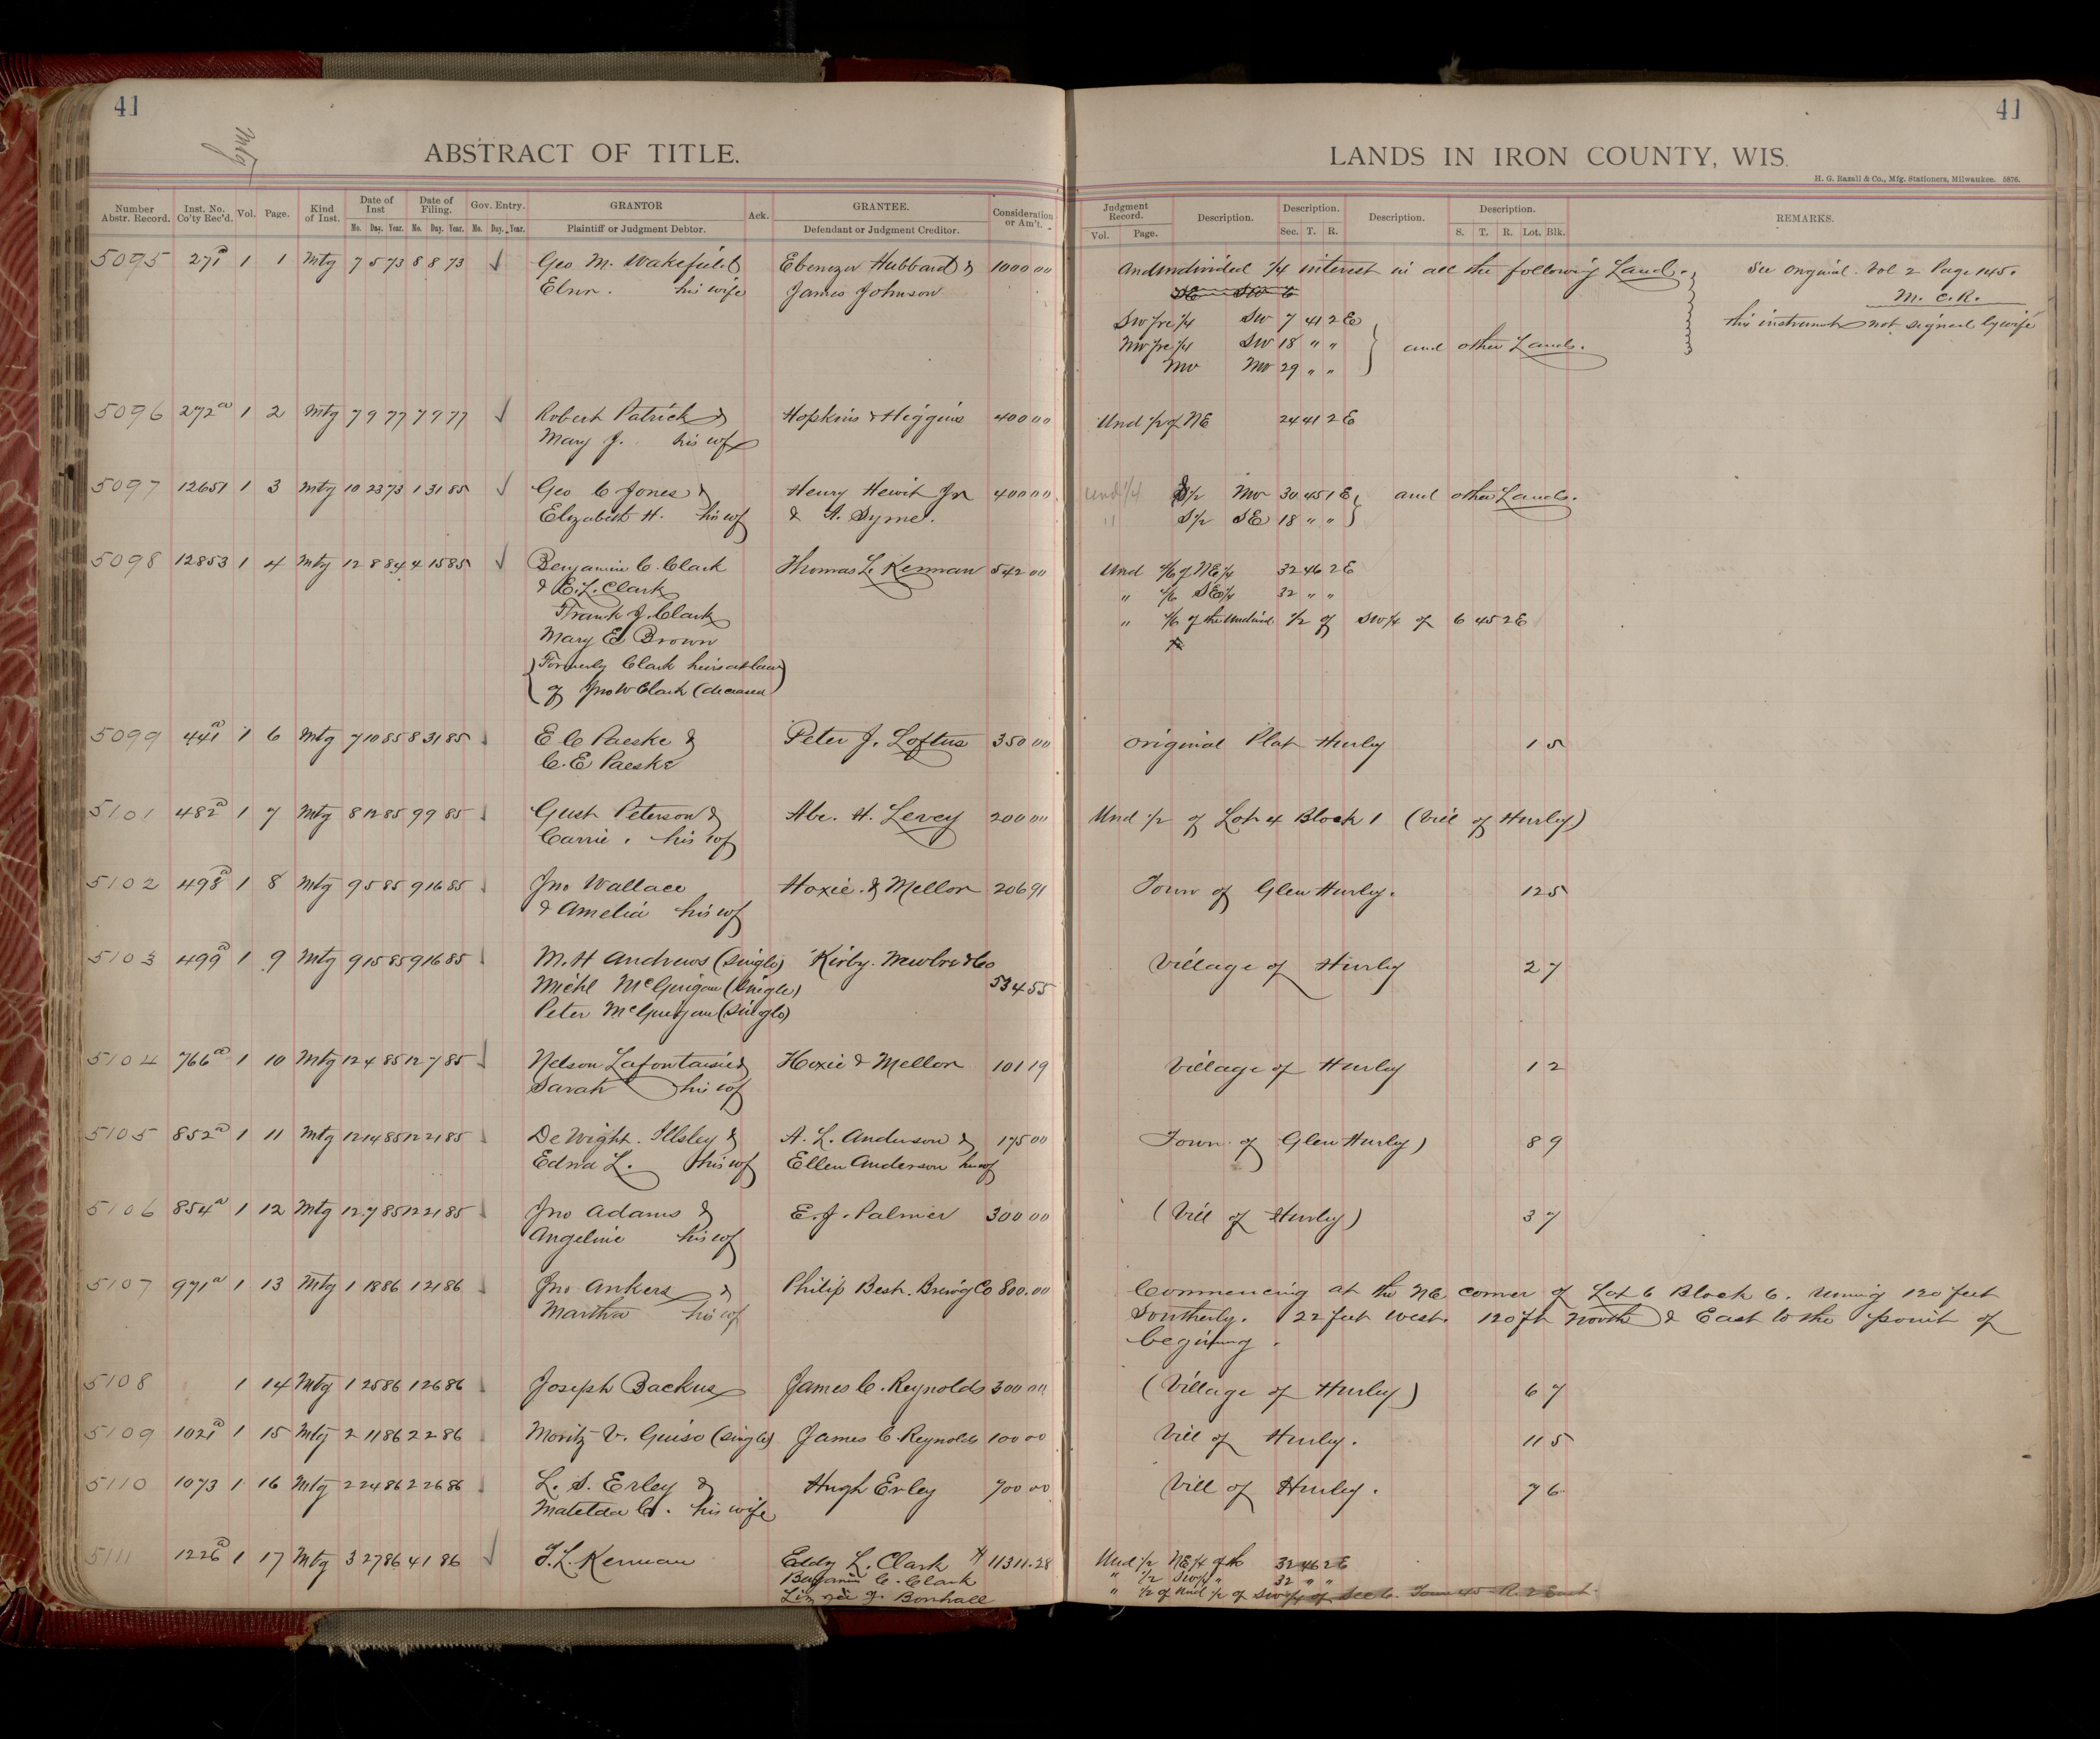 41
Mtg
ABSTRACT OF TITLE.
Number Abstr. Record. Inst. No. Co'ty Rec'd. Vol. Page. Kind of Inst. Date of Inst Mo. Day. Year. Date of Filing. Mo. Day. Year. Gov. Entry. Mo. Day. Year. GRANTOR Plaintiff or Judgment Debtor. Ack. GRANTEE. Defendant or Judgment Creditor. Consideration or Am't.
5095 271a 1 1 Mtg 7 5 73 8 8 73 Geo M. Wakefield Ebenezer Hubbard & 1000 00
his wife James Johnson
5096 272a 1 2 Mtg 7 9 77 7 9 77 Robert Patrick & Hopkins & Higgins 400 00
Mary J. his wf
5097 12651 1 3 Mtg 10 23 73 1 31 85 Geo C Jones & Henry Hewit Jr 400 00
Elizabeth H. his wf & A. Syme.
5098 12853 1 4 Mtg 12 8 84 4 15 85 Benjamin C. Clark Thomas L Kennan 542 00
& E. L. Clark
Frank J. Clark
Mary E Brown
Formerly Clark heirs at law
of Jno W Clark (deceased
5099 441a 1 6 Mtg 7 10 85 8 31 85 E C Paeske & Peter J. Loftus 350 00
C. E Paeske
5101 482a 1 7 Mtg 8 12 85 9 9 85 Gust Peterson & Abe. H. Levey 200 00
Carrie. his wf
5102 498a 1 8 Mtg 9 5 85 9 16 85 Jno Wallace Hoxie & Mellor 206 91
& Amelia his wf
5103 499a 1 9 Mtg 9 15 85 9 16 85 M. H Andrews (single) Kirby.
Michl McGuigan (single) 534 55
Peter McGuigan (single)
5104 766a 1 10 Mtg 12 4 85 12 7 85 Nelson Lafontaine & Hoxie & Mellor 101 19
Sarah his wf
5105 852a 1 11 Mtg 12 14 85 12 21 85 De Wight. Illsley & A. L. Anderson & 175 00
Edna L. his wf Ellen Anderson
5106 854a 1 12 Mtg 12 7 85 12 21 85 Jno Adams & E. J. Palmer 300 00
Angeline his wf
5107 971a 1 13 Mtg 1 18 86 1 21 86 Jno Ankers & Philip Best. Brew'g Co 800.00
Martha his wf
5108 1 14 Mtg 1 25 86 1 26 86 Joseph Backus James C. Reynolds 300 00
5109 1021a 1 15 Mtg 2 11 86 2 2 86 Moritz V. Guiso (single) James C. Reynolds 100 00
5110 1073 1 16 Mtg 2 24 86 2 26 86 L. S. Erley & Hugh Erley 700 00
Matelda C. his wife
5111 1226a 1 17 Mtg 3 27 86 4 1 86 T. L. Kennan Eddy L. Clark 11311.28
Benjamin C. Clark
Bonhall
41
LANDS IN IRON COUNTY, WIS.
H. G. Razall & Co., Mfg. Stationers, Milwaukee. 5876.
Judgment Record. Vol. Page. Description. Description. Sec. T. R. Description. Description. S. T. R. Lot. Blk. REMARKS.
Undivided 1/4 interest in all the following Land. See Original. Vol 2 Page 145.
SE SW 6 M. C. R.
SW fre 1/4 SW 7 41 2 E this instrument not signed by wife
NW fre 1/4 SW 18 " " and other Lands.
NW NW 29 " "
Und 1/2 of NE 24 41 2 E
und 1/4 S 1/2 NW 30 45 1 E and other Lands.
" S 1/2 SE 18 " "
Und 4/6 of NE 1/4 32 46 2 E
" 4/6 SE 1/4 32 " "
" 4/6 of the Undivid 1/2 of SW 1/4 of 6 45 2 E
Original Plat Hurley 1 5
Und 1/2 of Lot 4 Block 1 (Vill of Hurley)
Town of Glen Hurley. 12 5
Village of Hurley 2 7
Village of Hurley 1 2
Town of Glen Hurley) 8 9
(Vill of Hurley) 3 7
Commencing at the NE corner of Lot 6 Block 6. runing 120 feet
Southerly. 22 feet West. 120 ft North & East to the point of
begining.
(Village of Hurley) 6 7
Vill of Hurley. 11 5
Vill of Hurley. 7 6
Und 1/2 NE 1/4 of 32 46 2 E
" 1/2 SW 1/4 " 32 " "
" 1/2 of Und 1/2 of SW 1/4 of Sec 6. Town 45 R. 2 East.